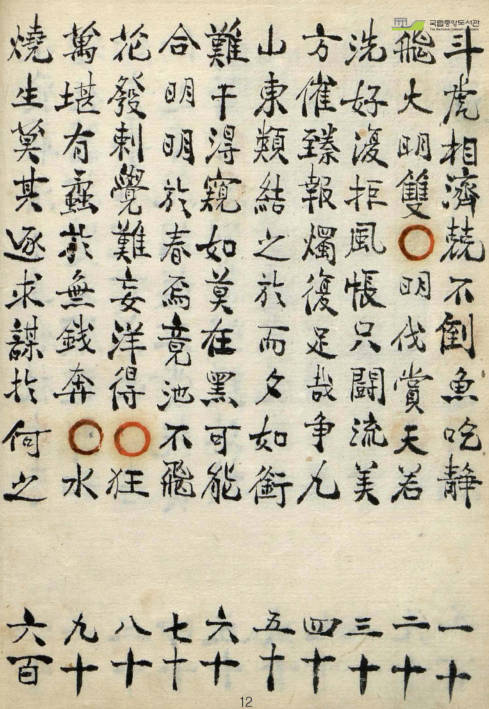 國立中央도서관
斗虎相濟兢不倒魚吃靜
飛大明雙○明伐賞天若
洗好復拒風帳只鬪流美
方催臻報燭復足哉爭凡
山東類結之於而夕如銜
難干淂窺如莫在黑可能
合明明於春焉竟池不飛
花發刺覺難妄洋得○狂
萬堪有蚕於無銭奔○水
燒生莫其逐求謀於何之
一十
二十
三十
四十
五十
六十
七十
八十
九十
六百
12